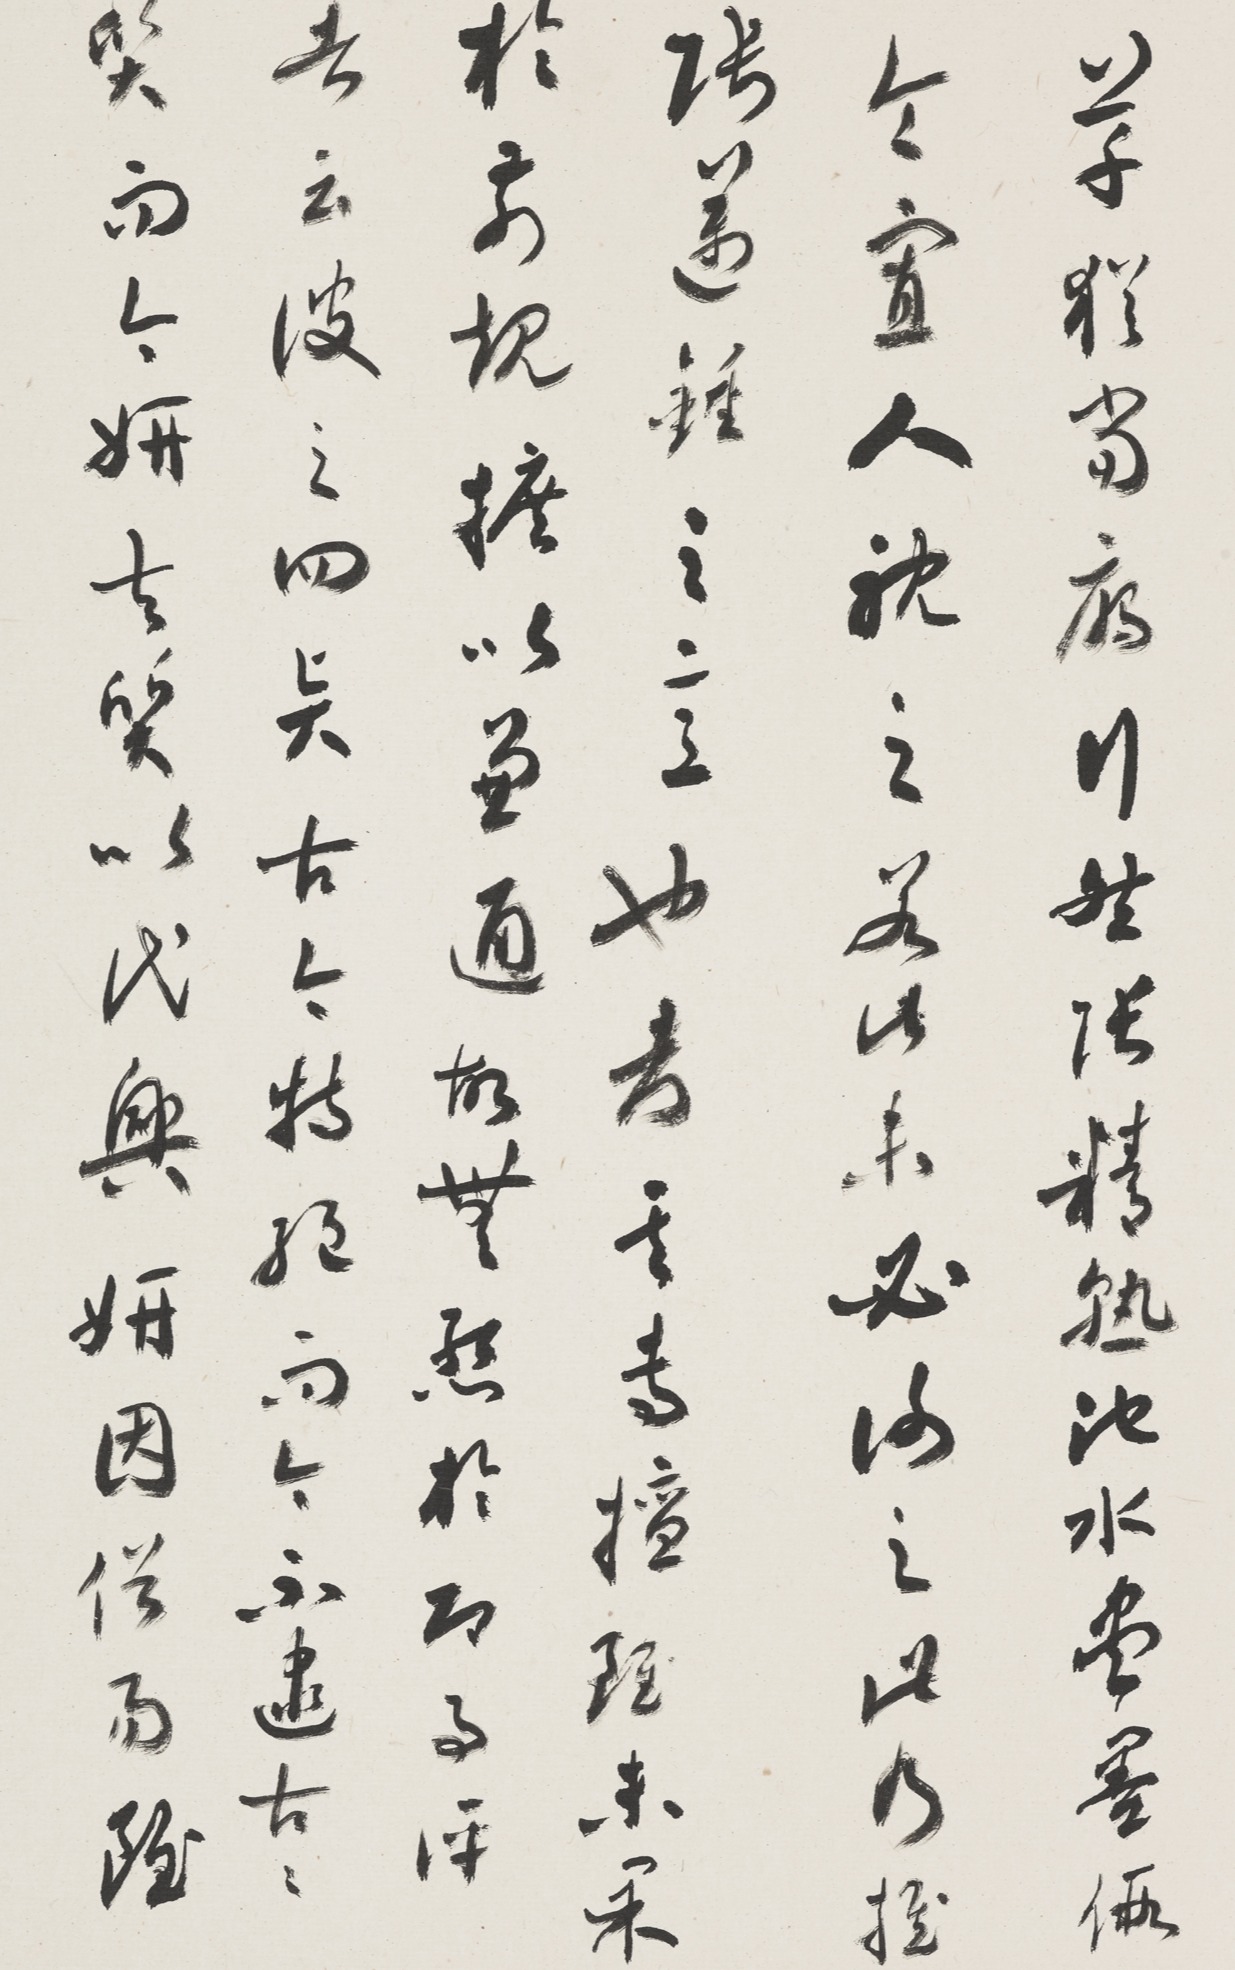 草猶當雁行然張精熟池水盡墨假
令寡人耽之若此未必謝之此乃推
張邁鍾之意也考其專擅雖未果
於前規摭以兼通故無慚於即事評
者云彼之四賢古今特絕而今不逮古〻
質而今妍夫質以代興妍因俗易雖